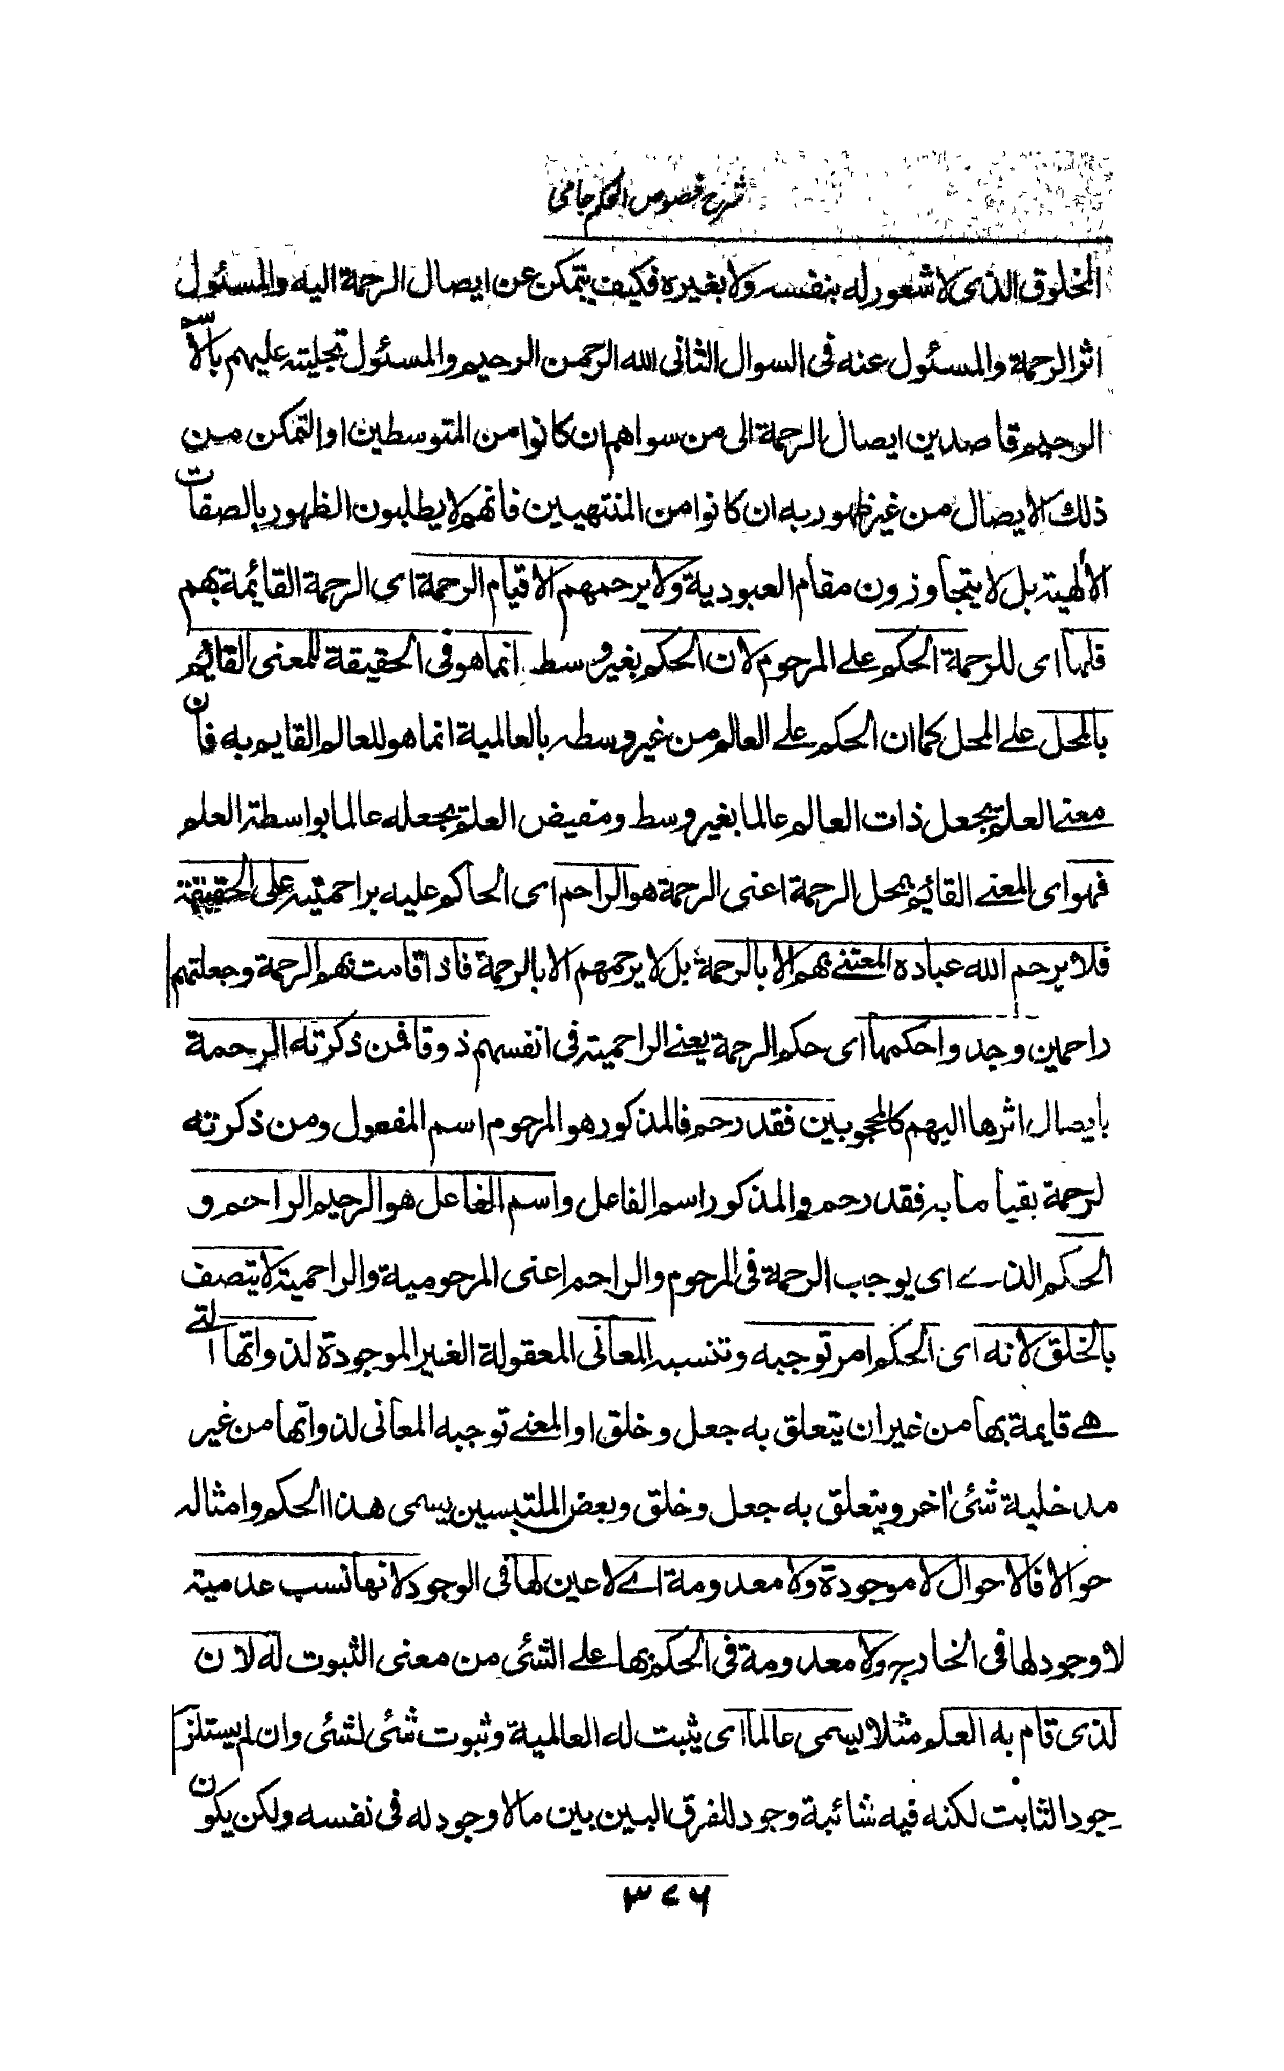 شرح فصوص الحكم جامى
المخلوق الذى لا شعور له بنفسه ولا بغيره فكيف يتمكن عن ايصال الرحمة اليه والمسئول
اثر الرحمة والمسئول عنه فى السوال الثانى الله الرحمن الرحيم والمسئول تجليته عليهم بالاسم
الرحيم قاصدين ايصال الرحمة الى من سواهم ان كانوا من المتوسطين او التمكن من
ذلك الايصال من غير ظهور به ان كانوا من المنتهيين فانهم لا يطلبون الظهور بالصفات
الألهية بل لا يتجاوزون مقام العبودية ولا يرحمهم الا قيام الرحمة اى الرحمة القائمة بهم
فلها اى للرحمة الحكم على المرحوم لان الحكم بغير وسط انما هو فى الحقيقة للمعنى القائم
بالمحل على المحل كما ان الحكم على العالم من غير وسطه بالعالمية انما هو للعالم القايم به فان
معنى العلم يجعل ذات العالم عالما بغير وسط ومفيض العلم يجعله عالما بواسطة العلم
فهو اى المعنى القائم بمحل الرحمة اعنى الرحمة هو الراحم اى الحاكم عليه براحميته على الحقيقة
فلا يرحم الله عباده المعتنى بهم الا بالرحمة بل لا يرحمهم الا بالرحمة فاذا قامت بهم الرحمة وجعلتهم
راحمين وجدوا حكمها اى حكم الرحمة يعنى الراحمية فى انفسهم ذوقا فمن ذكرته الرحمة
بايصال اثرها اليهم كالمحجوبين فقد رحم فالمذكور هو المرحوم اسم المفعول ومن ذكرته
لرحمة بقيا ما به فقد رحم والمذكور اسم الفاعل واسم الفاعل هو الرحيم الراحم و
الحكم الذى اى يوجب الرحمة فى المرحوم والراحم اعنى المرحومية والراحمية لا يتصف
بالخلق لانه اى الحكم امر توجبه وتنسبه المعانى المعقولة الغير الموجودة لذواتها التى
هى قايمة بها من غير ان يتعلق به جعل وخلق او المعنى توجبه المعانى لذواتها من غير
مدخلية شئ اخر ويتعلق به جعل وخلق وبعض الملتبسين يسمى هذا الحكم وامثاله
حوالا فالاحوال لا موجودة ولا معدومة اى لا عين لها فى الوجود لانها نسب عدمية
لا وجود لها فى الخارج ولا معدومة فى الحكم بها على الشئ من معنى الثبوت له لان
لذى قام به العلم مثلا يسمى عالما اى يثبت له العالمية وثبوت شئ لشئ وان لم يستلز
جود الثابت لكنه فيه شائبة وجود للفرق البين بين مالا وجود له فى نفسه ولكن يكون
٣٧٦